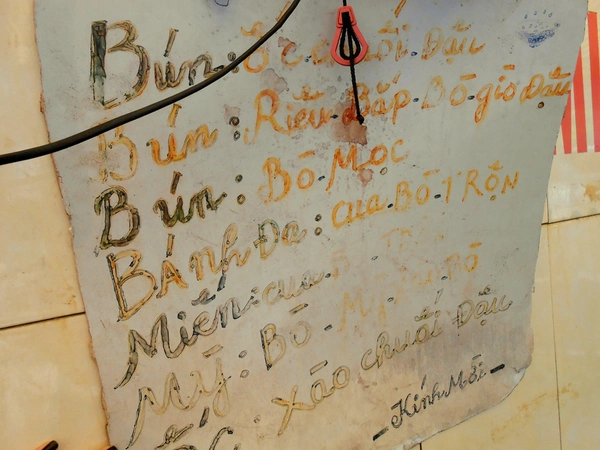 Bún: Ốc chuối. Đậu
Bún: Riêu. Bắp. Bò. giò Đậu
Bún: Bò. Mọc
BÁnh Đa: cua. Bò. TRỘN
Miến: cua.
Mỳ: Bò.
Xào chuối Đậu
- Kính Mời -